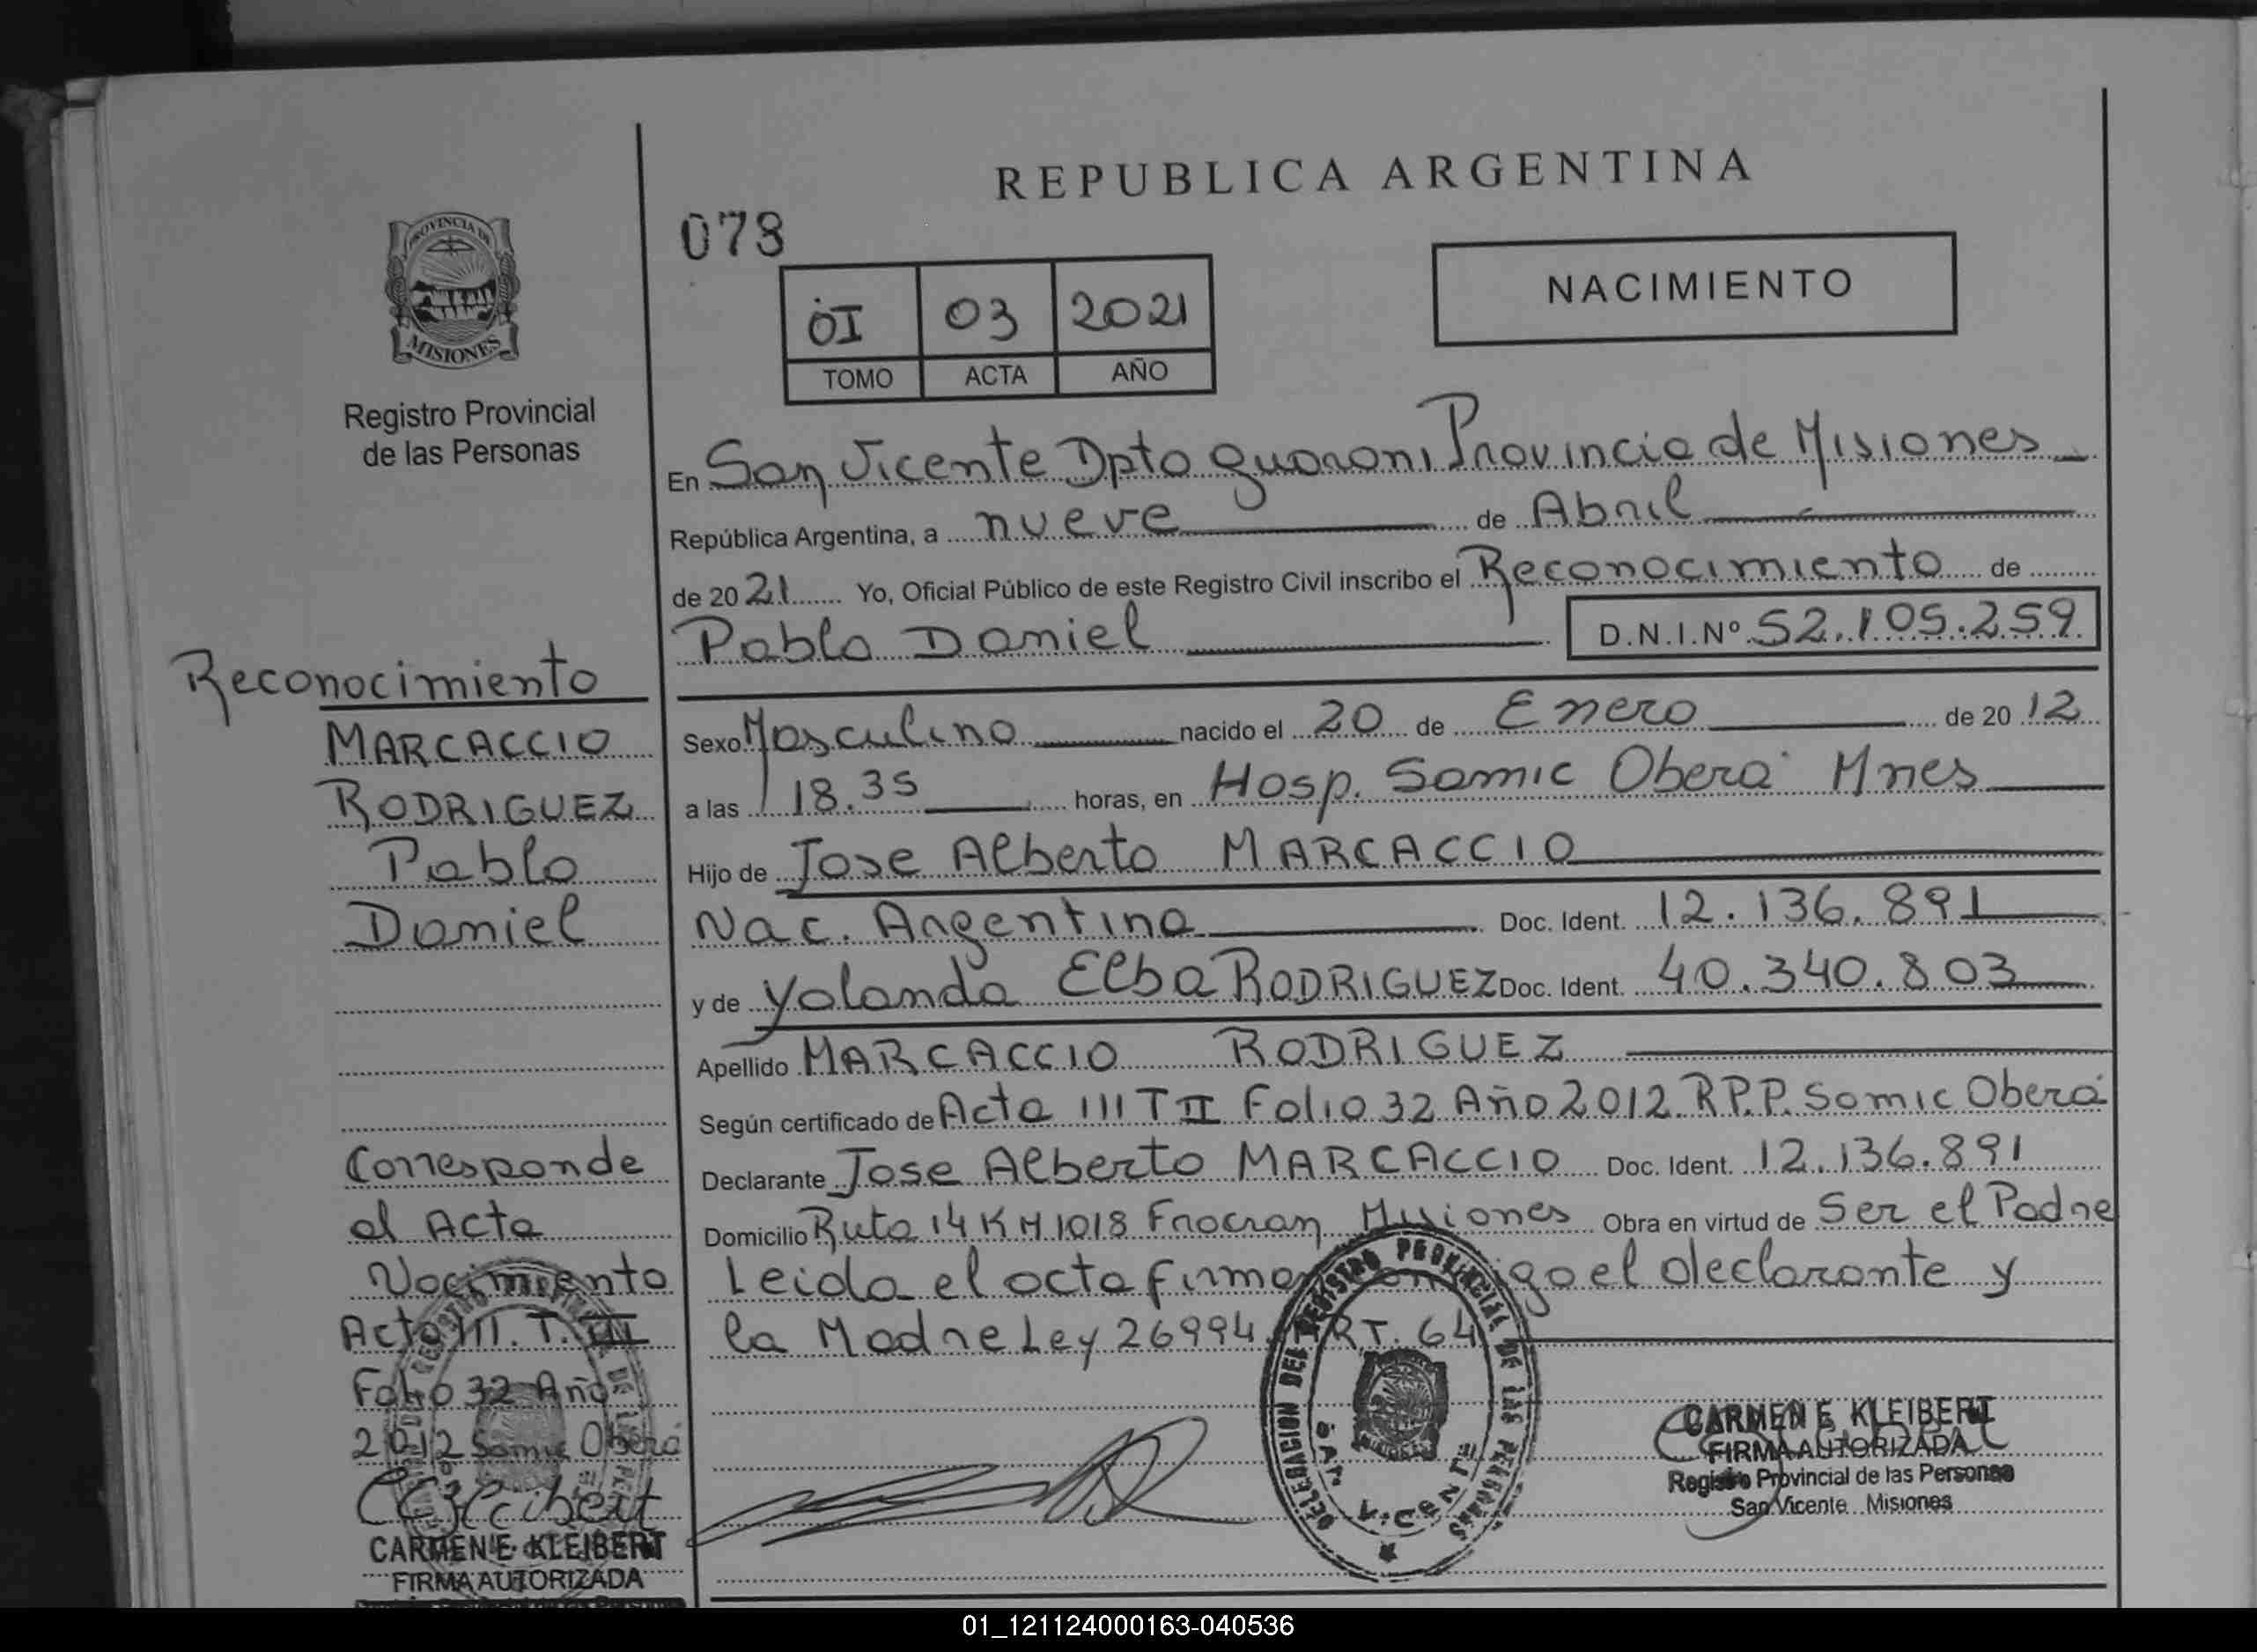 REPUBLICA ARGENTINA
073
PROVINCIA DE
MISIONES
Registro Provincial
de las Personas
OI 03 2021
TOMO ACTA AÑO
NACIMIENTO
En San Vicente Dpto guarani Provincia de Misiones
República Argentina, a nueve de Abril
de 2021 Yo, Oficial Público de este Registro Civil inscribo el Reconocimiento de
Pablo Daniel D.N.I.Nº 52.105.259
Sexo Masculino nacido el 20 de Enero de 2012
a las 18.35 horas, en Hosp. Samic Oberá Mnes
Hijo de Jose Alberto MARCACCIO
Nac. Argentina Doc. Ident. 12.136.891
y de Yolanda Elba RODRIGUEZ Doc. Ident. 40.340.803
Apellido MARCACCIO RODRIGUEZ
Según certificado de Acta III T II Folio 32 Año 2012 R.P.P. Samic Oberá
Declarante Jose Alberto MARCACCIO Doc. Ident. 12.136.891
Domicilio Ruta 14 KM 1018 Fracran Misiones Obra en virtud de Ser el Padre
Leida el acta firma el declarante y
la Madre Ley 26994 ART. 64
DELEGACION DEL REGISTRO PROVINCIAL DE LAS PERSONAS
SAN VICENTE
CARMEN E. KLEIBERT
FIRMA AUTORIZADA
Registro Provincial de las Personas
San Vicente Misiones
Reconocimiento
MARCACCIO
RODRIGUEZ
Pablo
Daniel
Corresponde
al Acta
Nacimiento
Acta III. T.
Folio 32 Año
2012 Samic Oberá
CARMEN E. KLEIBERT
FIRMA AUTORIZADA
01_121124000163-040536